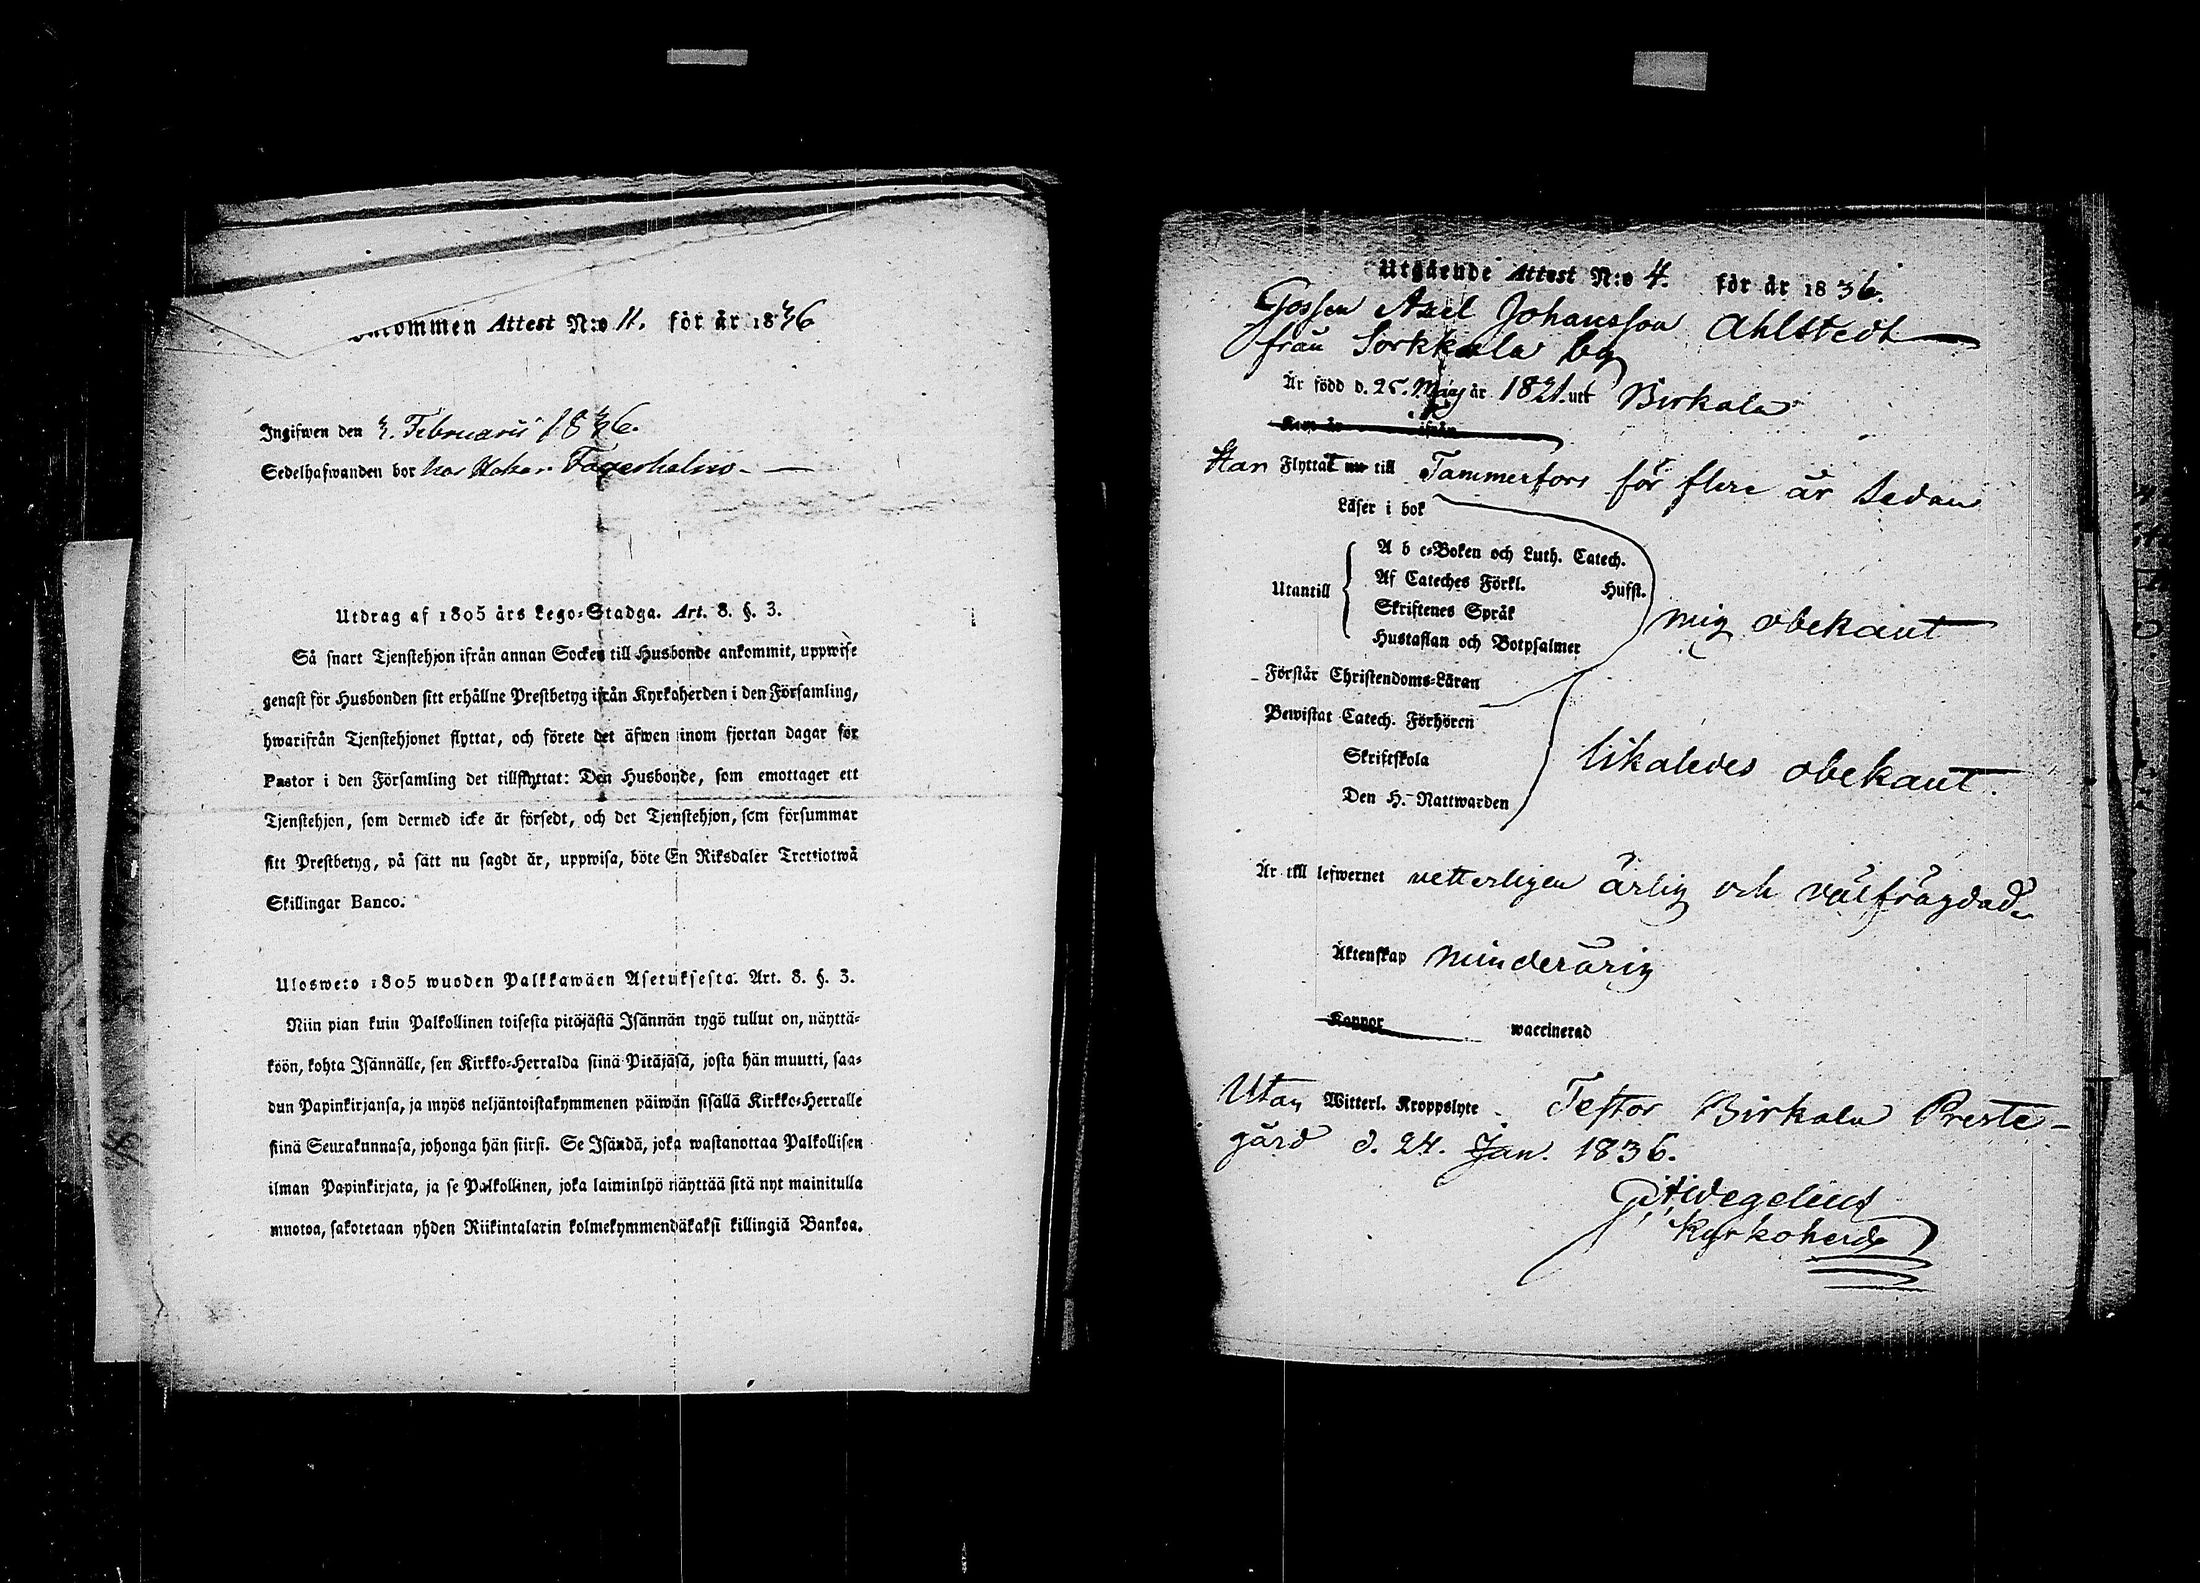 ommen Attest N:o 11. för år 1836
Ingifwen den 3. Februarii 1836.
Sedelhafwanden bor hos Fagerholm
Utdrag af 1805 års Lego-Stadga. Art. 8. §. 3.
Så snart Tjenstehjon ifrån annan Socken till Husbonde ankommit, uppwise
genast för Husbonden sitt erhållne Prestbetyg ifrån Kyrkoherden i den Församling,
hwarifrån Tjenstehjonet flyttat, och förete det äfwen inom fjortan dagar för
Pastor i den Församling det tillflyttat: Den Husbonde, som emottager ett
Tjenstehjon, som dermed icke är försedt, och det Tjenstehjon, som försummar
sitt Prestbetyg, på sätt nu sagdt är, uppwisa, böte En Riksdaler Trettiotwå
Skillingar Banco.
Ulosweto 1805 wuoden Palkkawäen Asetuksesta. Art. 8. §. 3.
Niin pian kuin Palkollinen toisesta pitäjästä Isännän tygö tullut on, näyttä-
köön, kohta Isännälle, sen Kirkko-Herralda siinä Pitäjäsä, josta hän muutti, saa-
dun Papinkirjansa, ja myös neljäntoistakymmenen päiwän sisällä Kirkko-Herralle
siinä Seurakunnasa, johonga hän siirsi. Se Isändä, joka wastanottaa Palkollisen
ilman Papinkirjata, ja se Palkollinen, joka laiminlyö näyttää sitä nyt mainitulla
muotoa, sakotetaan yhden Riikintalarin kolmekymmendäkaksi killingiä Bankoa.
Utgående Attest N:o 4. för år 1836.
Gossen Axel Johansson Ahlstedt
från Sorkkala by
Är född d. 25. Maij år 1821. uti Birkala
Kom år ifrån
Har Flyttat nu till Tammerfors för flere år sedan
Läser i bok
A b c-Boken och Luth. Catech.
Utantill Af Cateches Förkl. Hufst.
Skriftenes Språk
Hustaflan och Botpsalmer
mig obekant
Förstår Christendoms-Läran
Bewistat Catech. Förhören
Skriftskola
likaledes obekant.
Den H. Nattwarden
Är till lefwernet vetterligen ärlig och välfrägdad
Äktenskap minderårig
Koppor waccinerad
Utan Witterl. Kroppslyte. Testor Birkala Preste-
gård d. 24. Jan. 1836.
Wegelius
Kyrkoherde